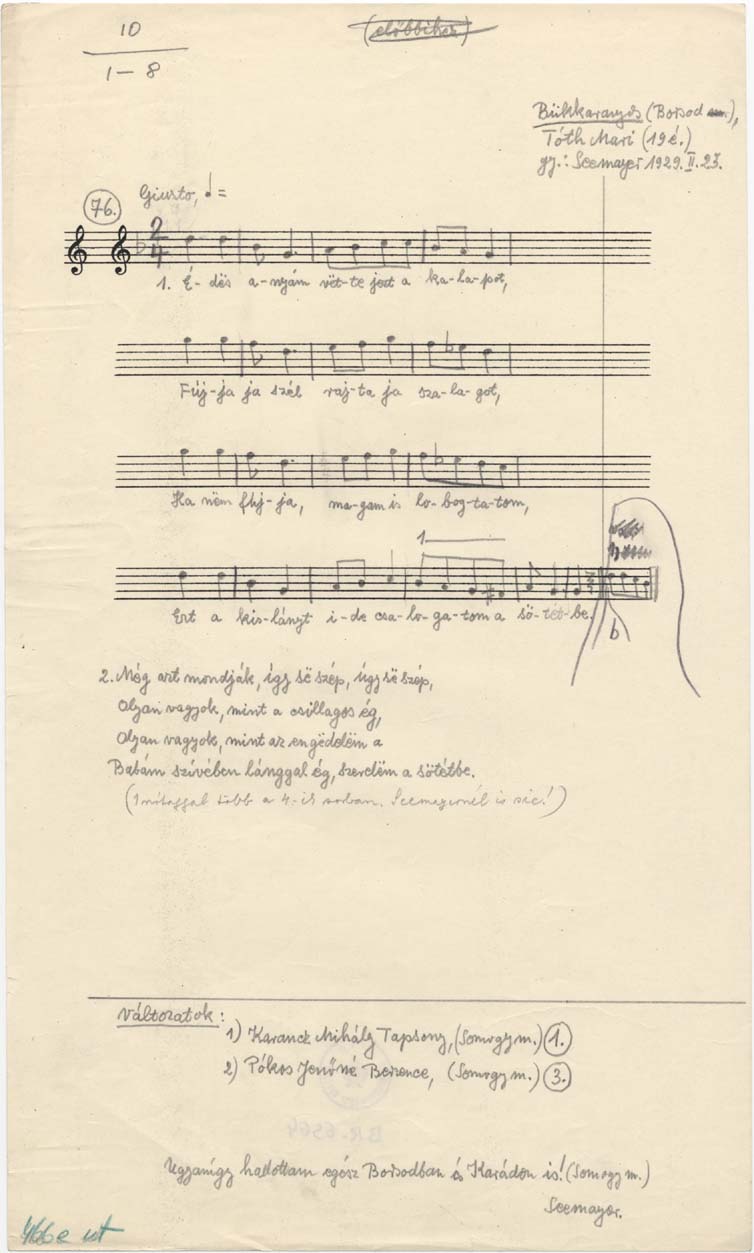 10
1-8
(előbbihez)
Bükkaranyos (Borsod m.),
Tóth Mari (19 é.)
gy.: Seemayer 1929. II. 23.
76.
Giusto, ♩ =
2
4
1. É-dës a-nyám vët-te jezt a ka-la-pot,
Fúj-ja ja szél raj-ta ja sza-la-got,
Ha nëm fúj-ja, ma-gam is lo-bog-ta-tom,
1
Ezt a kis-lányt i-de csa-lo-ga-tom a sö-tét-be.
b
2. Még azt mondják, így së szép, úgy së szép,
Olyan vagyok, mint a csillagos ég,
Olyan vagyok, mint az engëdelëm a
Babám szívében lánggal ég, szerelëm a sötétbe.
(1 szótaggal több a 4.-ik sorban. Seemayernél is sic!)
Változatok:
1) Karancz Mihály Tapsony, (Somogy m.) 1.
2) Pókos Jenőné Berzence, (Somogy m.) 3.
BR.-6564
Ugyanígy hallottam egész Borsodban és Karádon is! (Somogy m.)
Seemayer.